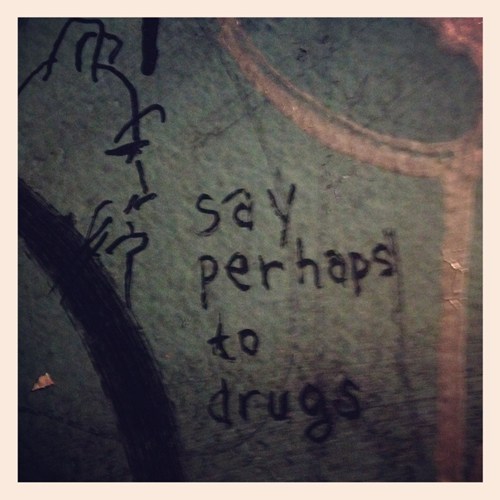 say
perhaps
to
drugs